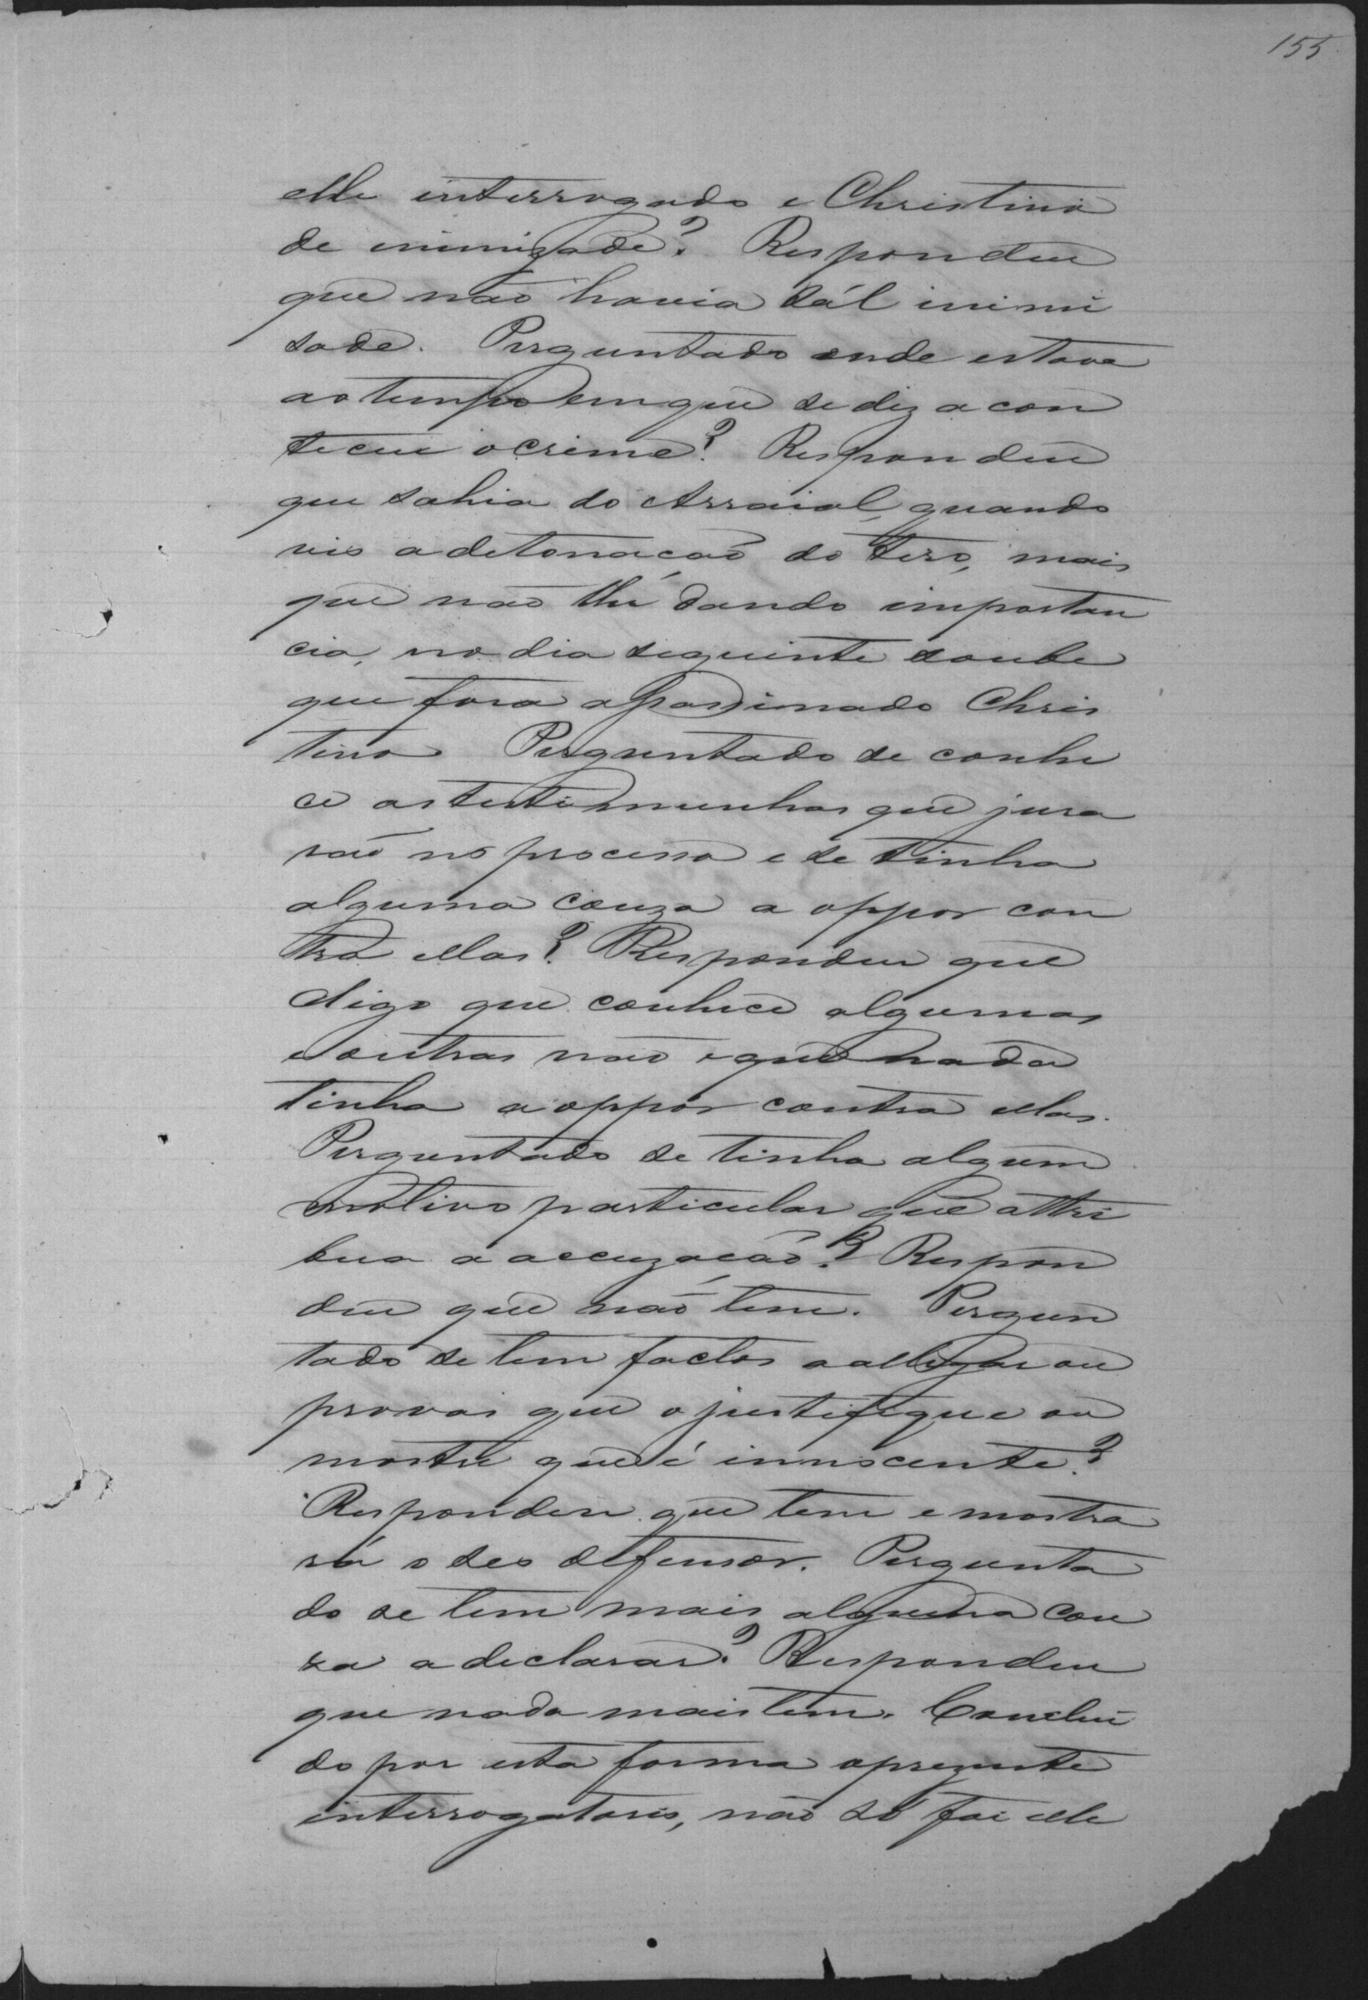 155
elle interrogado e Christino
de inimizade? Respondeu
que não havia tál inimi
sade. Perguntado onde estava
ao tempo em que se diz acon
teceu o crime? Respondeu
que sahia do Arraial, quando
vio a detonação do tiro, mais
que não lhe dando importan
cia, no dia seguinte soube
que fora assassinado Chris
tino Perguntado se conhe
ce as testimunhas que jura
rão no processo e se tinha
alguma couza a oppor con
tra ellas? Respondeu que
digo que conhece algumas
e outras não e que nada
tinha a oppor contra ellas.
Perguntado se tinha algum
motivo particular que attri
bua a accuzação? Respon
deu que não tem. Pergun
tado se tem factos a allegar ou
provas que o justifique ou
mostre que é innoscente?
Respondeu que tem e mostra
rá o seo defensor. Pergunta
do se tem mais alguma cou
za a declarar? Respondeu
que nada mais tem. Conclui
do por esta forma o prezente
interrogatorio, não só foi elle